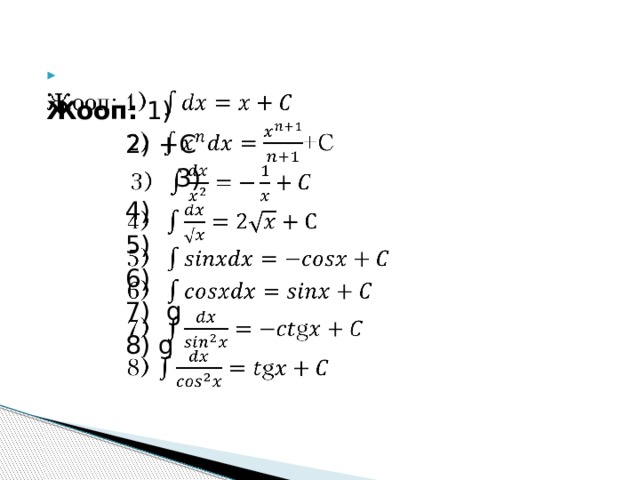 Жооп: 1) ∫ dx = x + C
2) ∫ xⁿ dx = xⁿ⁺¹/(n+1) + C
3) ∫ dx/x² = −1/x + C
4) ∫ dx/√x = 2√x + C
5) ∫ sinxdx = −cosx + C
6) ∫ cosxdx = sinx + C
7) ∫ dx/sin²x = −ctgx + C
8) ∫ dx/cos²x = tgx + C